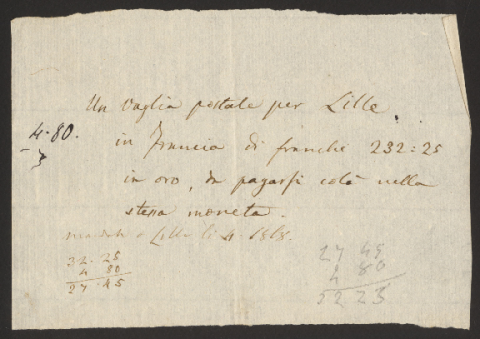 Un vaglia postale per Lille,
4.80.
in Francia di franchi 232:25
in oro, da pagarsi colà nella
stessa moneta.
Lille li 4
32.25
4 80
27.45
27 45
4 80
52 25